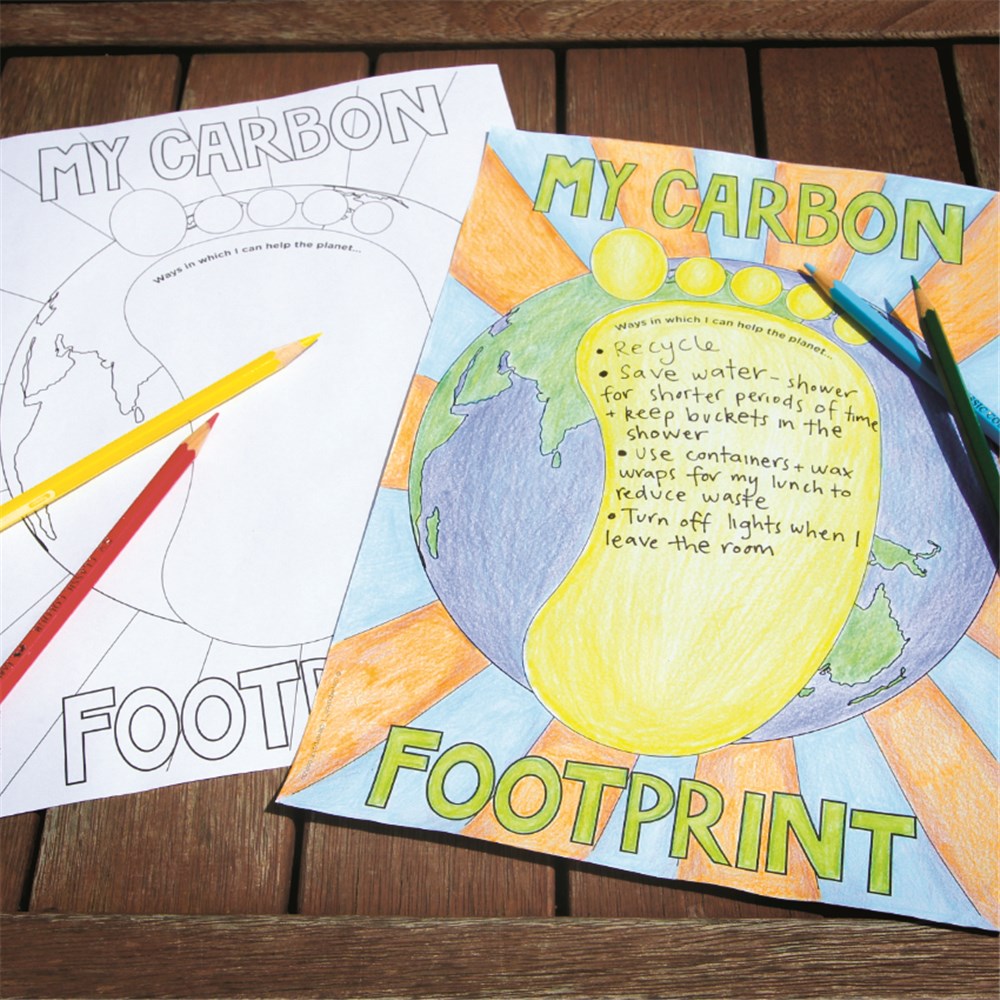 MY CARBON
Ways in which I can help the planet...
FOOTP
MY CARBON
Ways in which I can help the planet...
• Recycle
• Save water - shower
for shorter periods of time
+ keep buckets in the
shower
• Use containers + wax
wraps for my lunch to
reduce waste
• Turn off lights when I
leave the room
FOOTPRINT
CLASSIC COLOUR